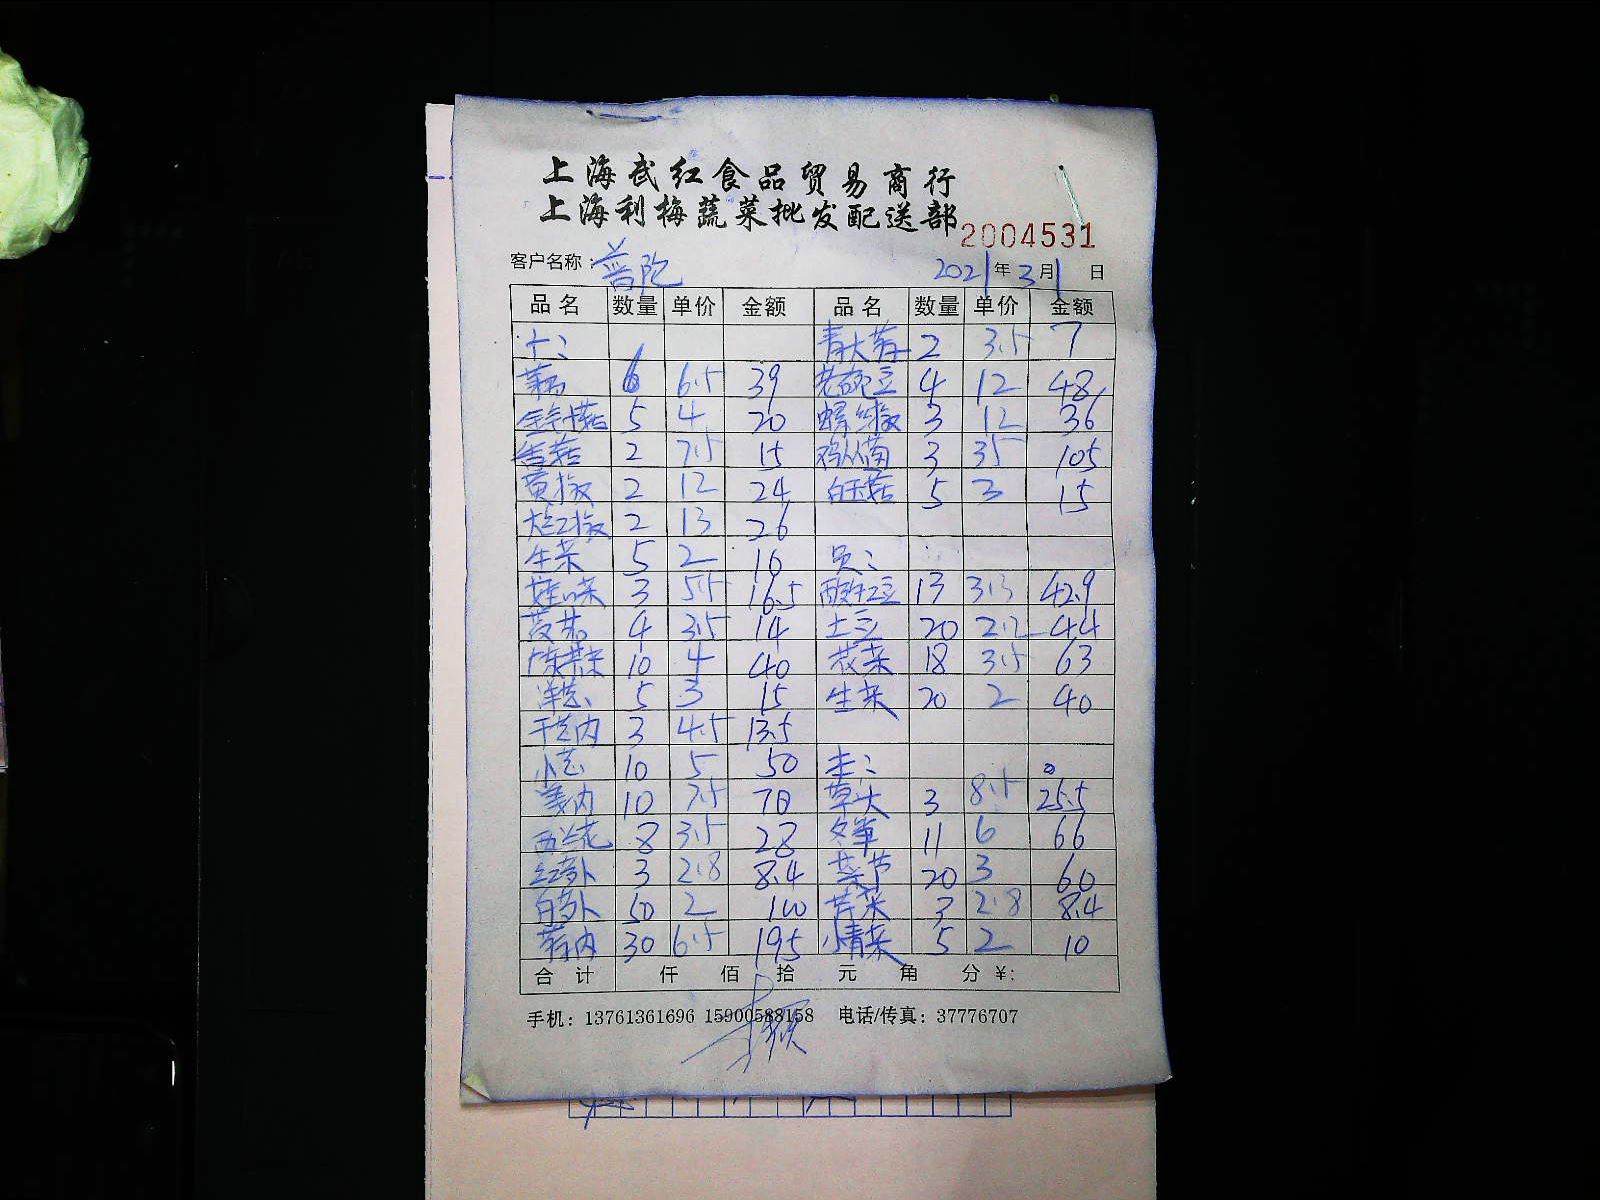 上海武红食品贸易商行
上海利梅蔬菜批发配送部
2004531
客户名称：普陀 2021年3月1日
品名 数量 单价 金额 品名 数量 单价 金额
2 3.5 7
6 6.5 39 老豌豆 4 12 48
金针菇 5 4 20 螺丝椒 3 12 36
香菇 2 7.5 15 鸡从菌 3 35 105
黄椒 2 12 24 白玉菇 5 3 15
大红椒 2 13 26
生菜 5 2 10
娃娃菜 3 5.5 16.5 酸豇豆 13 3.3 42.9
4 3.5 14 土豆 20 2.2 44
10 4 40 花菜 18 3.5 63
洋葱 5 3 15 生菜 20 2 40
干葱肉 3 4.5 13.5
小葱 10 5 50
姜肉 10 7 草头 3 8.5 25.5
西兰花 8 3.5 28 冬笋 11 6 66
红萝卜 3 2.8 8.4 20 3 60
白萝卜 50 2 100 芹菜 3 2.8 8.4
30 6.5 195 小青菜 5 2 10
合计 仟 佰 拾 元 角 分 ¥:
手机：13761361696 15900588158 电话/传真：37776707